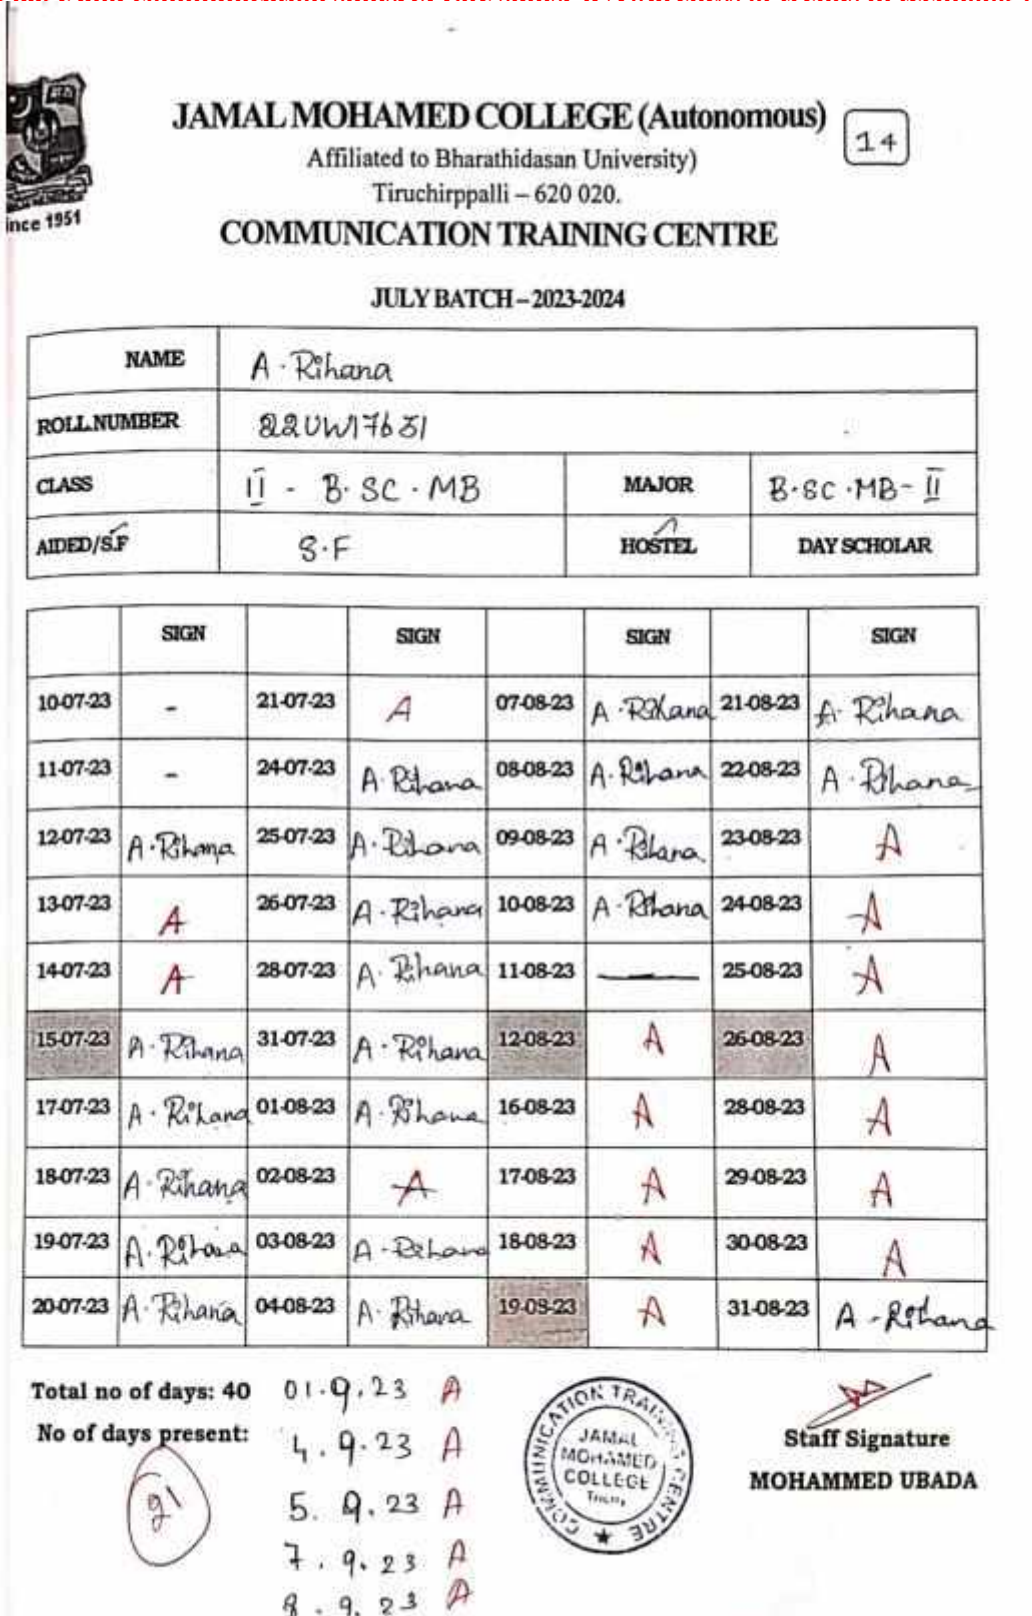 ince 1951
JAMAL MOHAMED COLLEGE (Autonomous)
14
Affiliated to Bharathidasan University)
Tiruchirppalli – 620 020.
COMMUNICATION TRAINING CENTRE
JULY BATCH – 2023-2024
NAME A. Rihana
ROLL NUMBER 22UW17631
CLASS II - B.SC.MB MAJOR B.SC.MB-II
AIDED/S.F S.F HOSTEL DAY SCHOLAR
SIGN SIGN SIGN SIGN
10-07-23 - 21-07-23 A 07-08-23 A.Rihana 21-08-23 A.Rihana
11-07-23 - 24-07-23 A.Rihana 08-08-23 A.Rihana 22-08-23 A.Rihana
12-07-23 A.Rihana 25-07-23 A.Rihana 09-08-23 A.Rihana 23-08-23 A
13-07-23 A 26-07-23 A.Rihana 10-08-23 A.Rihana 24-08-23 A
14-07-23 A 28-07-23 A.Rihana 11-08-23 — 25-08-23 A
15-07-23 A.Rihana 31-07-23 A.Rihana 12-08-23 A 26-08-23 A
17-07-23 A.Rihana 01-08-23 A.Rihana 16-08-23 A 28-08-23 A
18-07-23 A.Rihana 02-08-23 A 17-08-23 A 29-08-23 A
19-07-23 A.Rihana 03-08-23 A-Rihana 18-08-23 A 30-08-23 A
20-07-23 A.Rihana 04-08-23 A.Rihana 19-08-23 A 31-08-23 A-Rihana
Total no of days: 40 01.9.23 A
No of days present: 4.9.23 A
21
5.9.23 A
7.9.23 A
8.9.23 A
COMMUNICATION TRAINING CENTRE
JAMAL
MOHAMED
COLLEGE
Staff Signature
MOHAMMED UBADA